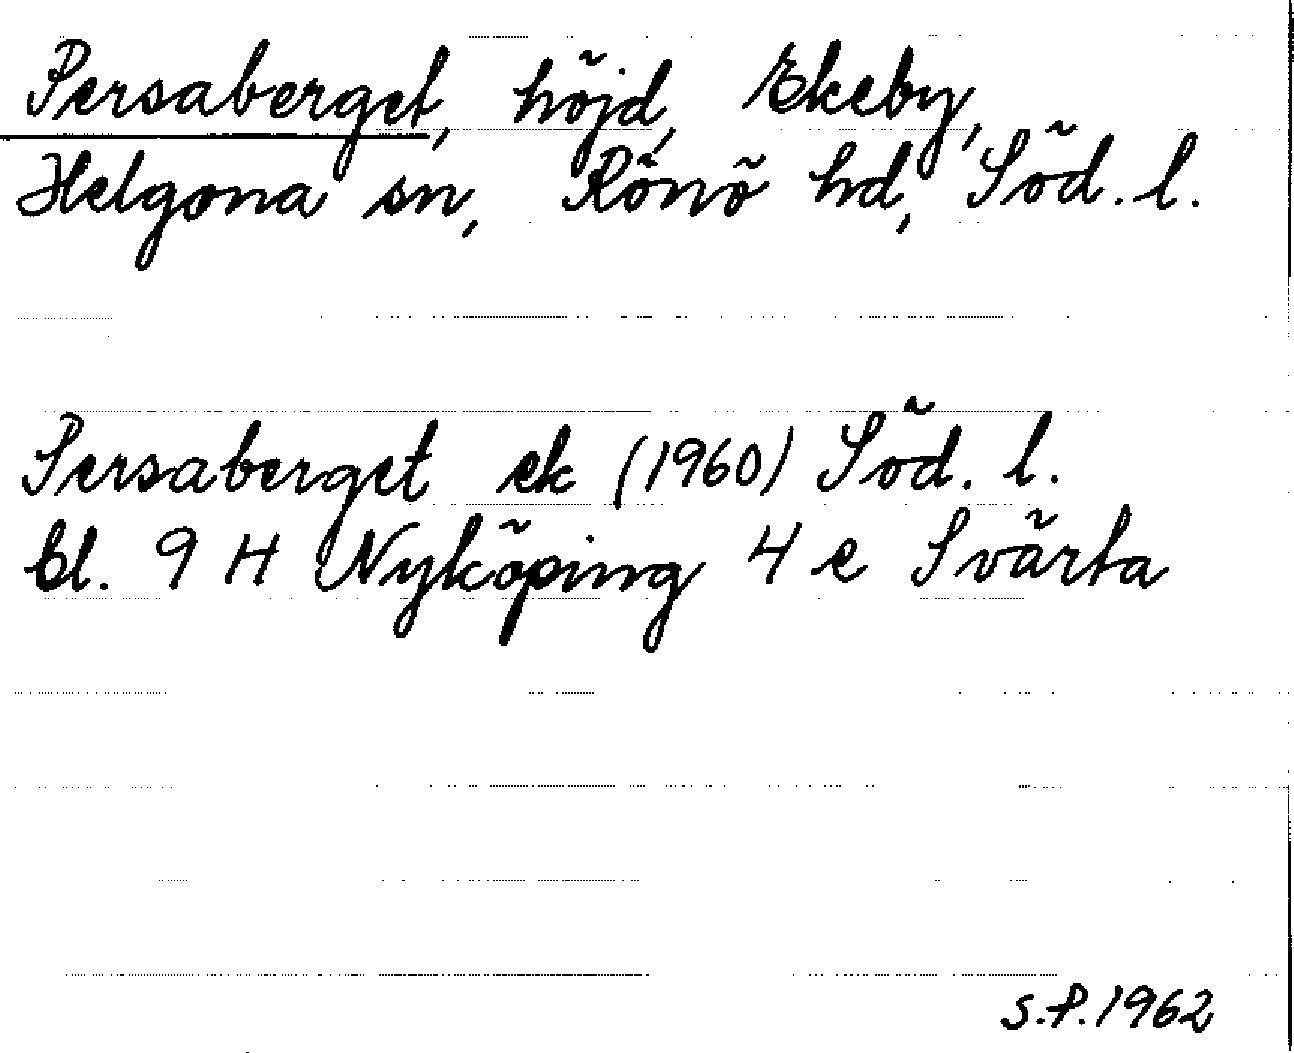 Persaberget, höjd, Ekeby,
Helgona sn, Rönö hd, Söd. l.
Persaberget ek (1960) Söd. l.
bl. 9 H Nyköping 4 e Svärta
S.P. 1962